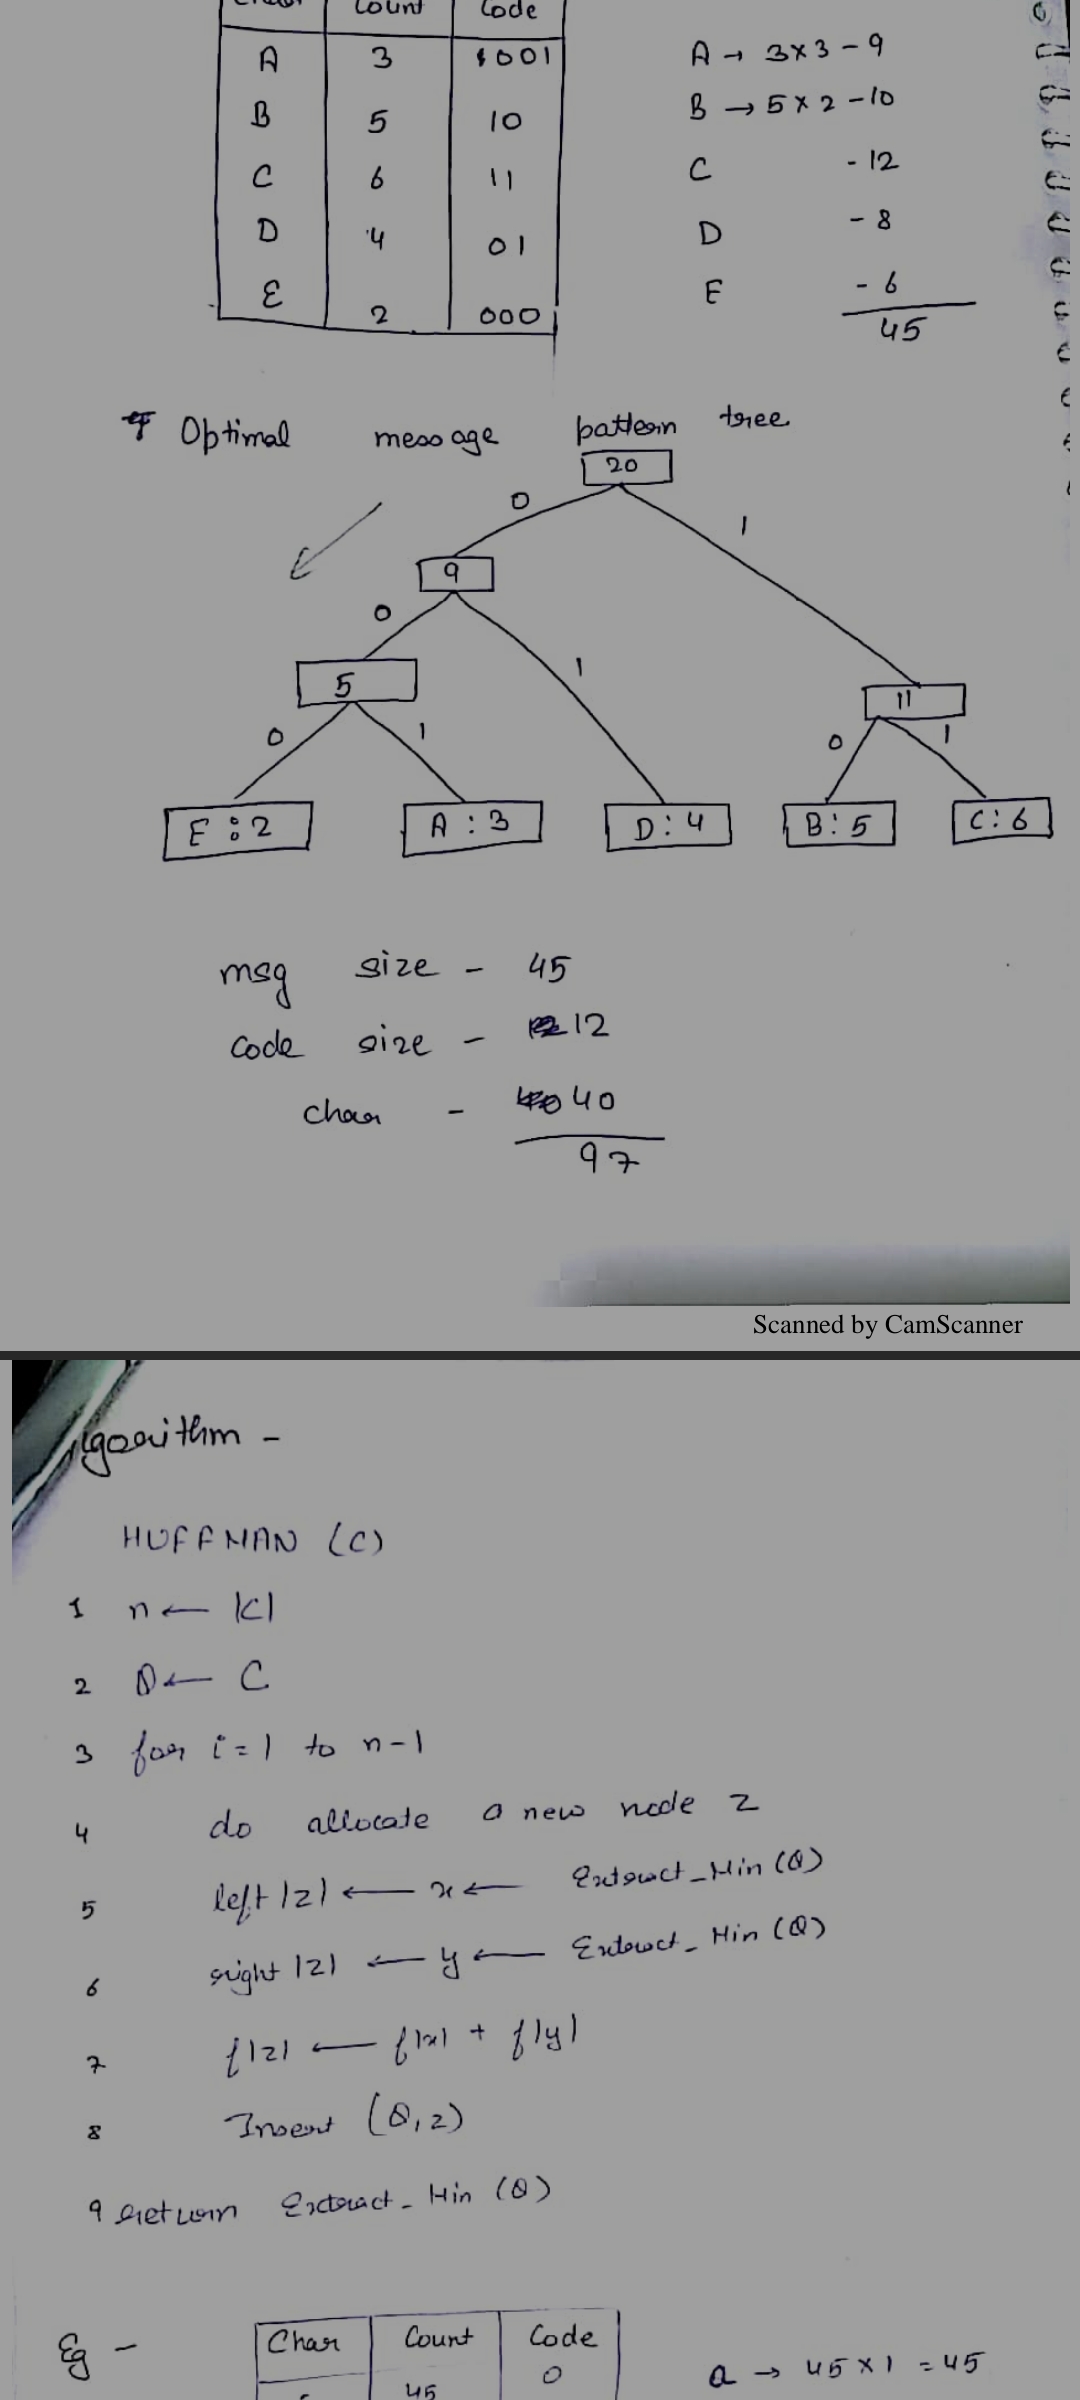 Count Code
A 3 001 A → 3×3 - 9
B 5 10 B → 5×2 - 10
C 6 11 C - 12
D 4 01 D - 8
E 2 000 E - 6
45
Optimal message pattern tree
20
0 1
9
0 1
5 11
0 1 0 1
E:2 A:3 D:4 B:5 C:6
msg size - 45
code size - 12
char - 40
97
Scanned by CamScanner
lgorithm -
HUFFMAN (C)
1 n ← |C|
2 Q ← C
3 for i=1 to n-1
4 do allocate a new node z
5 left |z| ← x ← Extract_Min (Q)
6 right |z| ← y ← Extract_Min (Q)
7 f|z| ← f|x| + f|y|
8 Insert (Q,z)
9 return Extract_Min (Q)
Eg - Char Count Code
45 0 a → 45×1 = 45